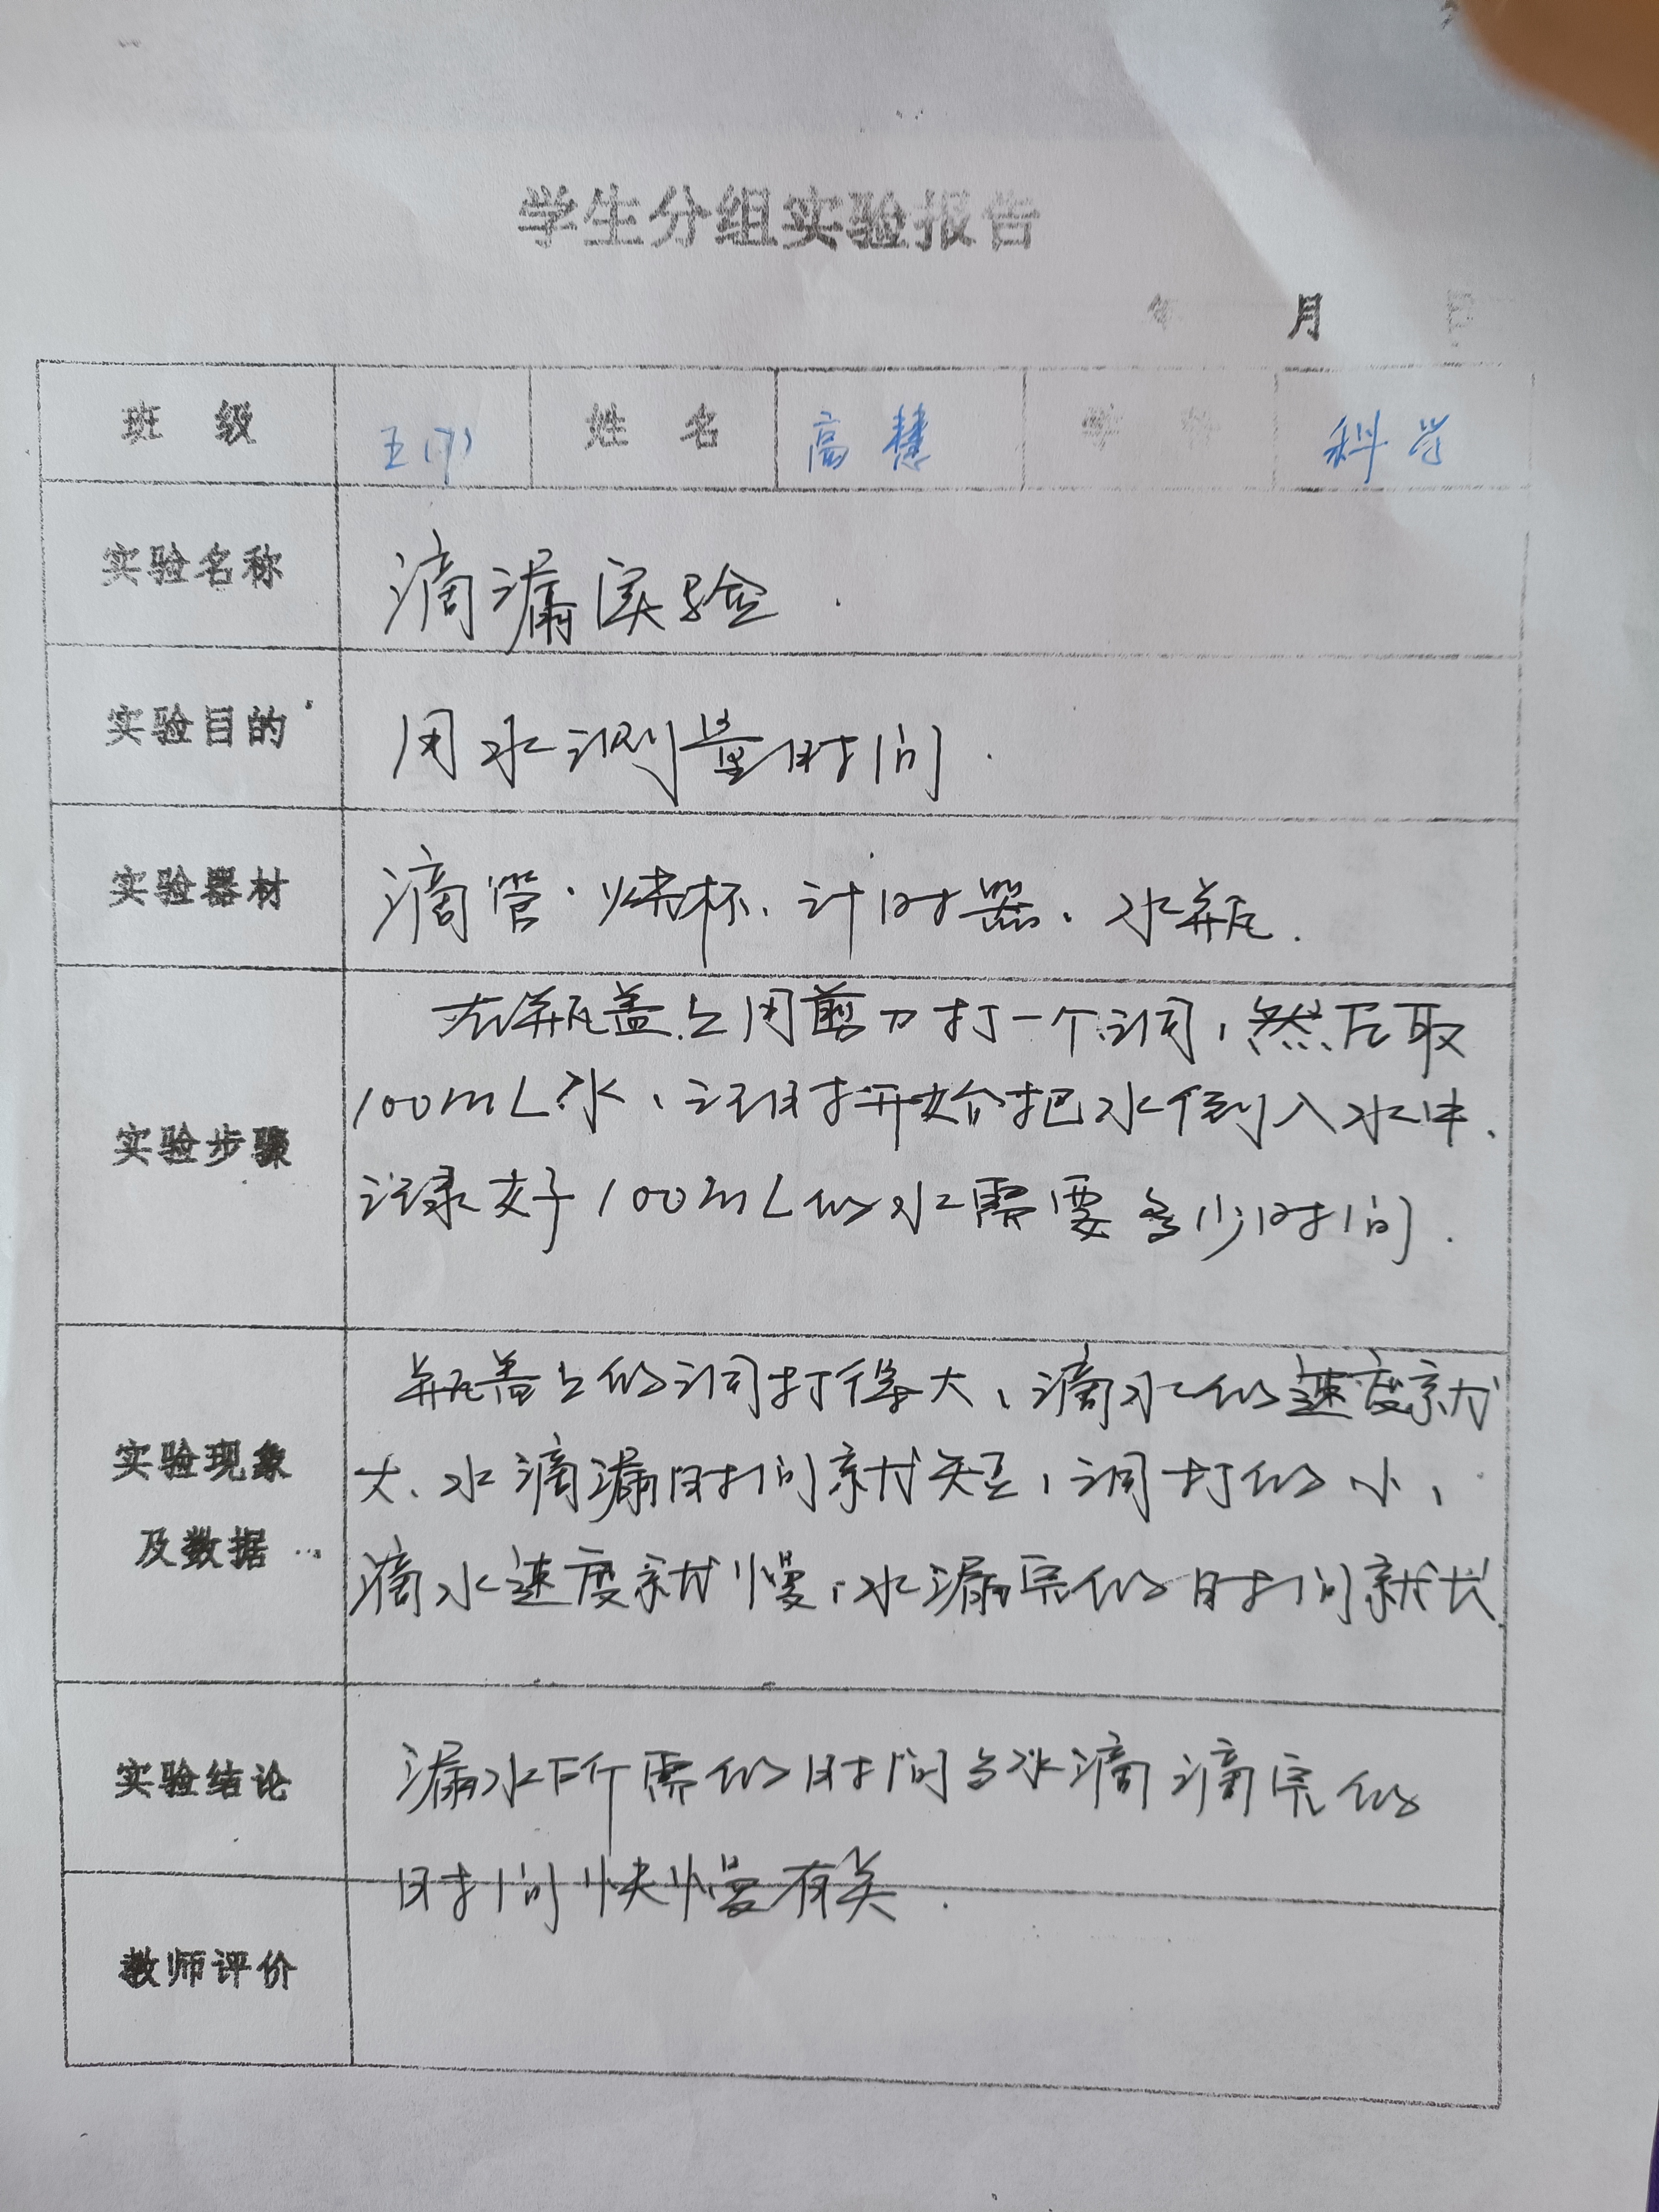 学生分组实验报告
年 月 日
班 级 五(7) 姓 名 高慧 学 科 科学
实验名称 滴漏实验.
实验目的 用水测量时间.
实验器材 滴管.烧杯、计时器、水瓶.
实验步骤
在瓶盖上用剪刀打一个洞,然后取
100mL水、计时开始把水倒入水中、
记录 100mL的水需要多少时间.
实验现象
及数据
瓶盖上的洞打得大,滴水的速度就
大、水滴漏时间就短,洞打的小,
滴水速度就慢,水漏完的时间就长
实验结论
漏水所需的时间与水滴滴完的
时间快慢有关.
教师评价